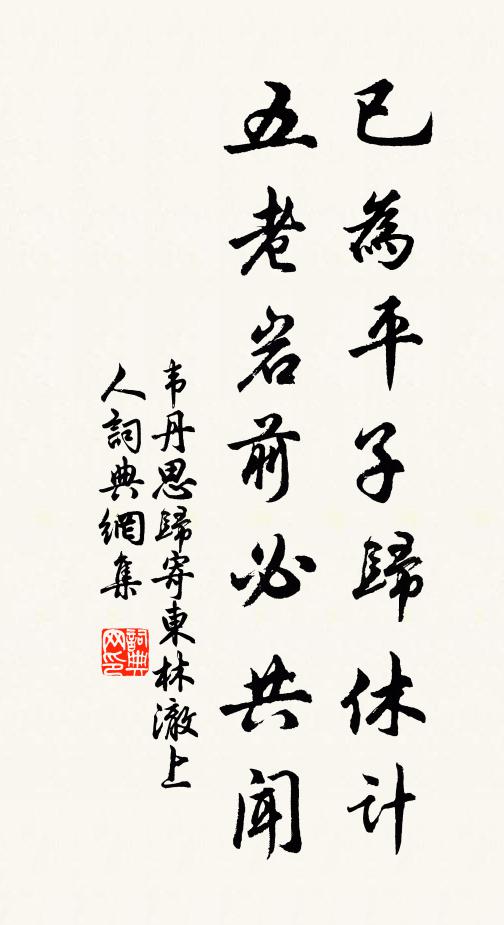 已為平子歸休計
五老岩前必共聞
韦丹思歸寄東林澈上
人詞典網集
詞典网印